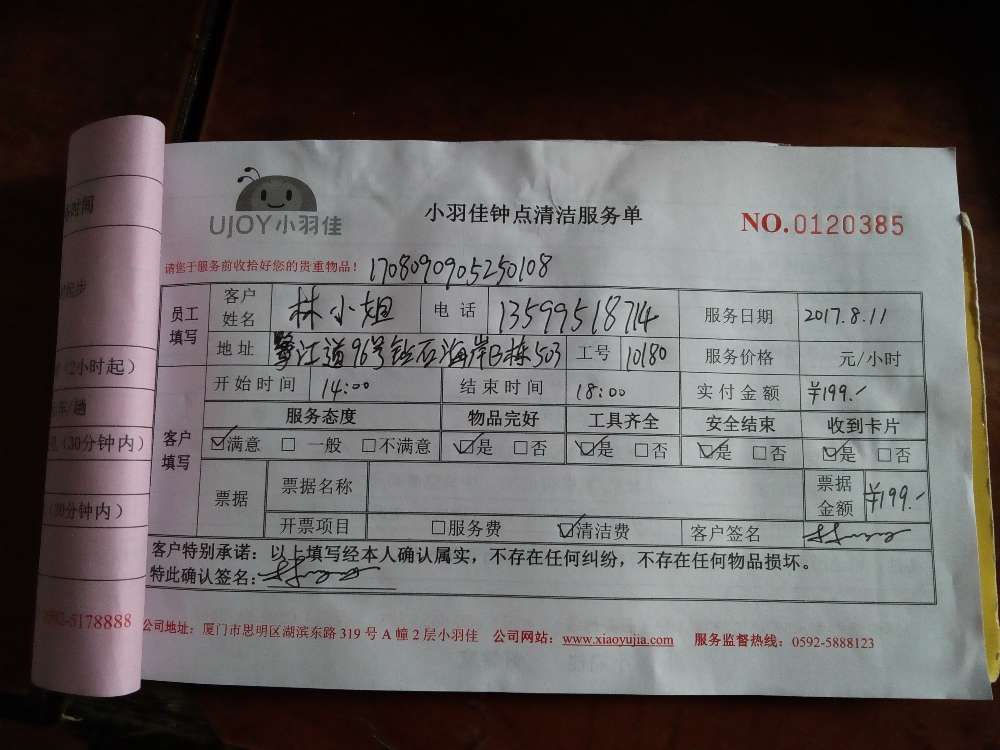 务时间
(2小时起)
元/趟
(30分钟内)
(30分钟内)
0592-5178888
UJOY小羽佳
小羽佳钟点清洁服务单
NO.0120385
请您于服务前收拾好您的贵重物品！
1708090905250108
员工填写 客户姓名 林小姐 电话 13599518714 服务日期 2017.8.11
地址 鹭江道96号钻石海岸B栋503 工号 10180 服务价格 元/小时
客户填写 开始时间 14:00 结束时间 18:00 实付金额 ¥199.-
服务态度 物品完好 工具齐全 安全结束 收到卡片
☑满意 □一般 □不满意 ☑是 □否 ☑是 □否 ☑是 □否 ☑是 □否
票据 票据名称 票据金额 ¥199.-
开票项目 □服务费 ☑清洁费 客户签名
客户特别承诺：以上填写经本人确认属实，不存在任何纠纷，不存在任何物品损坏。
特此确认签名：
公司地址：厦门市思明区湖滨东路 319 号 A 幢 2 层小羽佳 公司网站：www.xiaoyujia.com 服务监督热线：0592-5888123